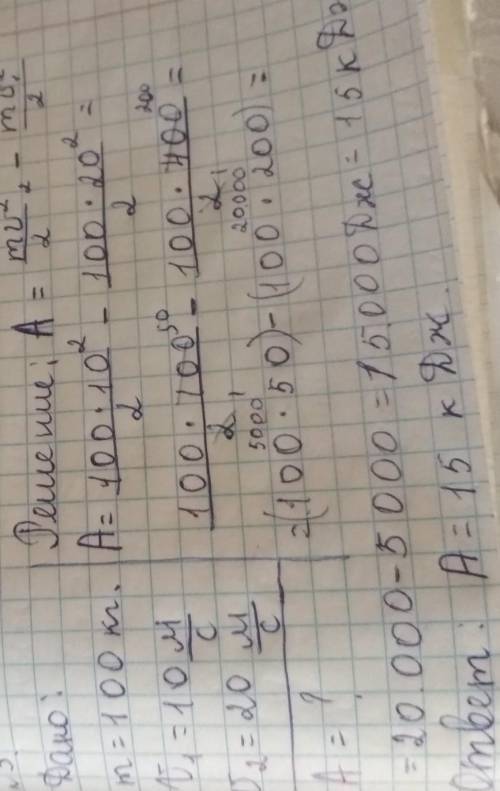 Дано:
m = 100 кг.
υ₁ = 10 м/с
υ₂ = 20 м/с
A = ?
Решение: A = mυ₂²/2 - mυ₁²/2
A = 100·10²/2 - 100·20²/2 =
100·100 50/2 1 - 100·400 200/2 1 =
5000 20.000
=(100·50)-(100·200) =
=20.000-5000=15000Дж=15кДж
Ответ: A=15 кДж.